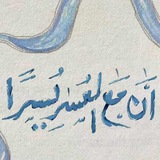 إنّ مع العسر يسرًا